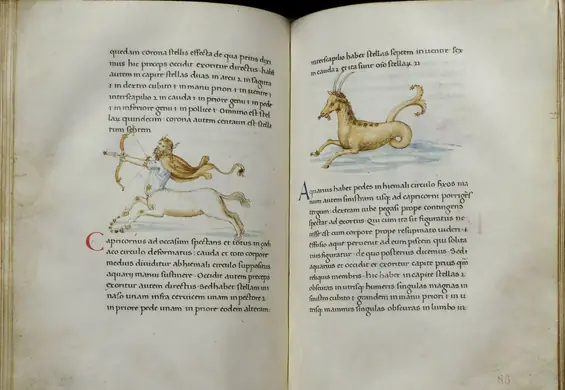 quedam corona stellis effecta de qua prius dixi
mus hic preceps occidit exoritur directus habet
autem in capite stellas duas in arcu 2 in sagitta
1 in dextro cubito 1 in manu priori 1 in uentre 1
interscapilio 2 in cauda 1 in priore genu 1 in pede
1 in inferiore genu 1 in pollice 1 Omnino est stel
laꝝ quindecim corona autem centauri est stella
rum septem
Capricornus ad occasum spectans et totus in zodi
aco circulo deformatus: cauda et toto corpore
medius diuiditur ab hiemali circulo suppositus
aquarii manui sinistre Occidit autem preceps
exoritur autem directus Sed habet stellam in
naso unam infra ceruicem unam in pectore 2
in priore pede unam in priore eodem alteram:
interscapilio habet stellas septem in uentre sex
in cauda 2 et ita sunt oīo stellaꝝ
Aquarius habet pedes in hiemali circulo fixos ma
num autem sinistram usqꝫ ad capricorni porrigēs
tergum: dextram iube pegasi prope contingens
spectat ad exortus Qui cum ita sit figuratus ne
cesse est cum corpore prope resupinato
effusio aque peruenit ad eum piscem qui solita
rius figuratur de quo posterius dicemus Sed
aquarius et occidit et exoritur capite prius q̄m
reliquis membris hic habet in capite stellas 2
obscuras in utrisqꝫ humeris singulas magnas in
sinistro cubito 1 grandem in manu priori 1 in u
trisqꝫ mammis singulas obscuras in lumbo in